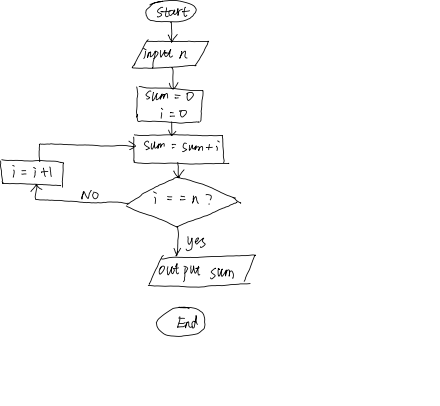 Start
input n
sum = 0
i = 0
sum = sum+i
i = i+1
i == n ?
NO
yes
output sum
End